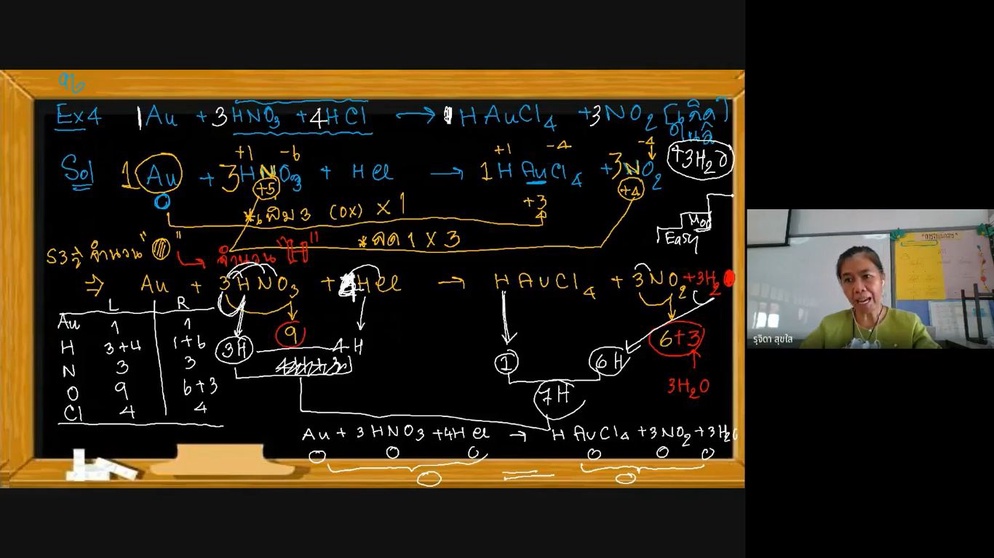 Ex4 1Au + 3HNO₃ + 4HCl → 1HAuCl₄ + 3NO₂
+3H₂O
+1 -6 +1 -4 -4
Sol 1Au + 3HNO₃ + HCl → 1HAuCl₄ + 3NO₂
0 +5 +3 +4
*เพิ่ม 3 (OX) X 1
*ลด 1 X 3
Easy
จำนวน "H"
⇒ Au + 3HNO₃ + 4HCl → HAuCl₄ + 3NO₂ + 3H₂O
L R
Au 1 1
H 3+4 1+6
N 3 3
O 9 6+3
Cl 4 4
3H 9 4H 1 6H 6+3
7H 3H₂O
Au + 3HNO₃ + 4HCl → HAuCl₄ + 3NO₂ + 3H₂O
รุจิดา สุขใส